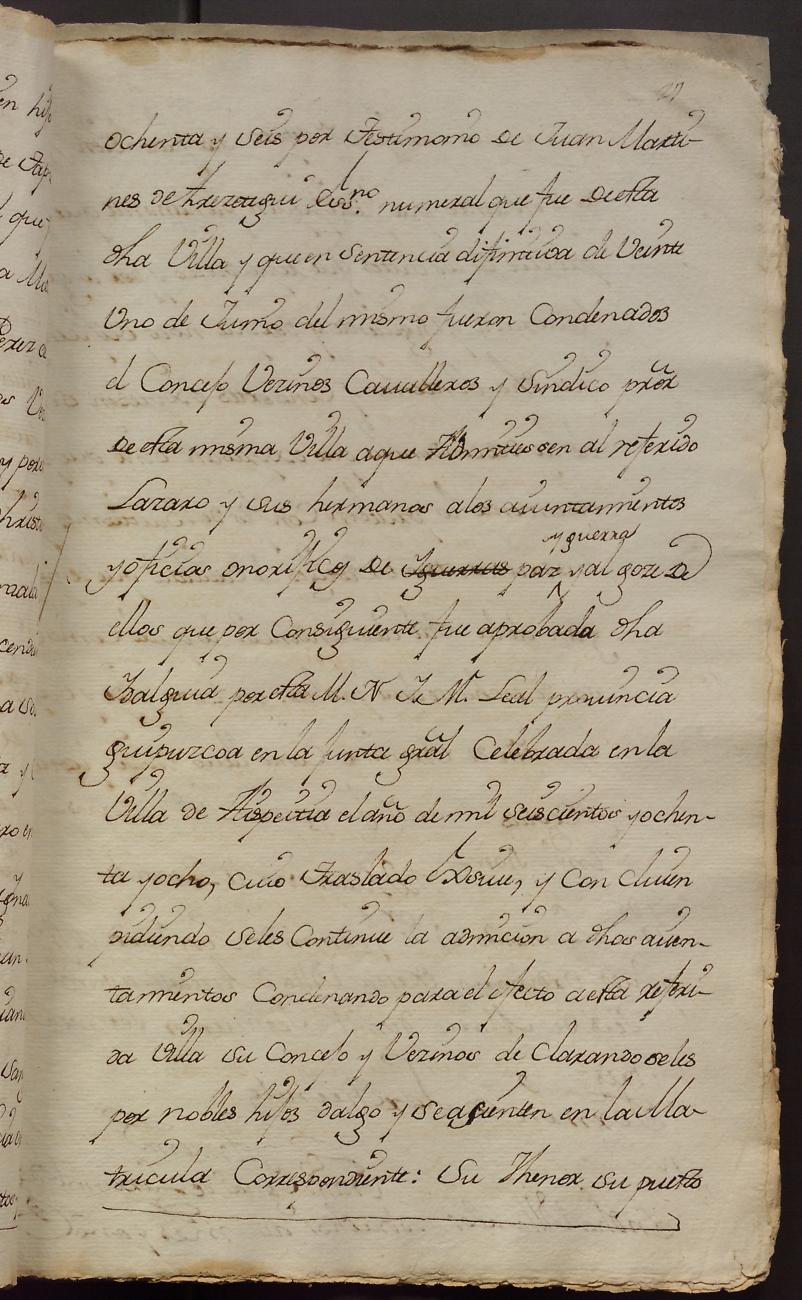 ochenta y seis por testimonio de Juan Marti-
nes de Hrezetagui Essn.no numeral que fue de esta
dha Villa y que en sentencia difinitiva de Veinte
Uno de Junio del mismo fueron Condenados
el Concejo Vezinos Cavalleros y Sindico pror
de esta misma Villa a que Admitiesen al referido
Lazaro y sus hermanos a los aiuntamientos
y oficios onorificos de Yguerras paz y guerra y al goze de
ellos que por Consiguiente fue aprobada dha
Ydalguia por esta M. N. Y M. Leal provincia
guipuzcoa en la Junta gral Celebrada en la
Villa de Aspeitia el año de mil seiscientos y ochen-
ta y ocho, cuio traslado Exsiue, y Concluien
pidiendo seles Continue la admicion a dhos aiuen-
tamientos Condenando para el efecto a esta referi-
da Villa su Concejo y Vezinos declarandoseles
por nobles hijos dalgo y se asienten en la Ma-
tricula Correspondiente: Su Thenor su puesto